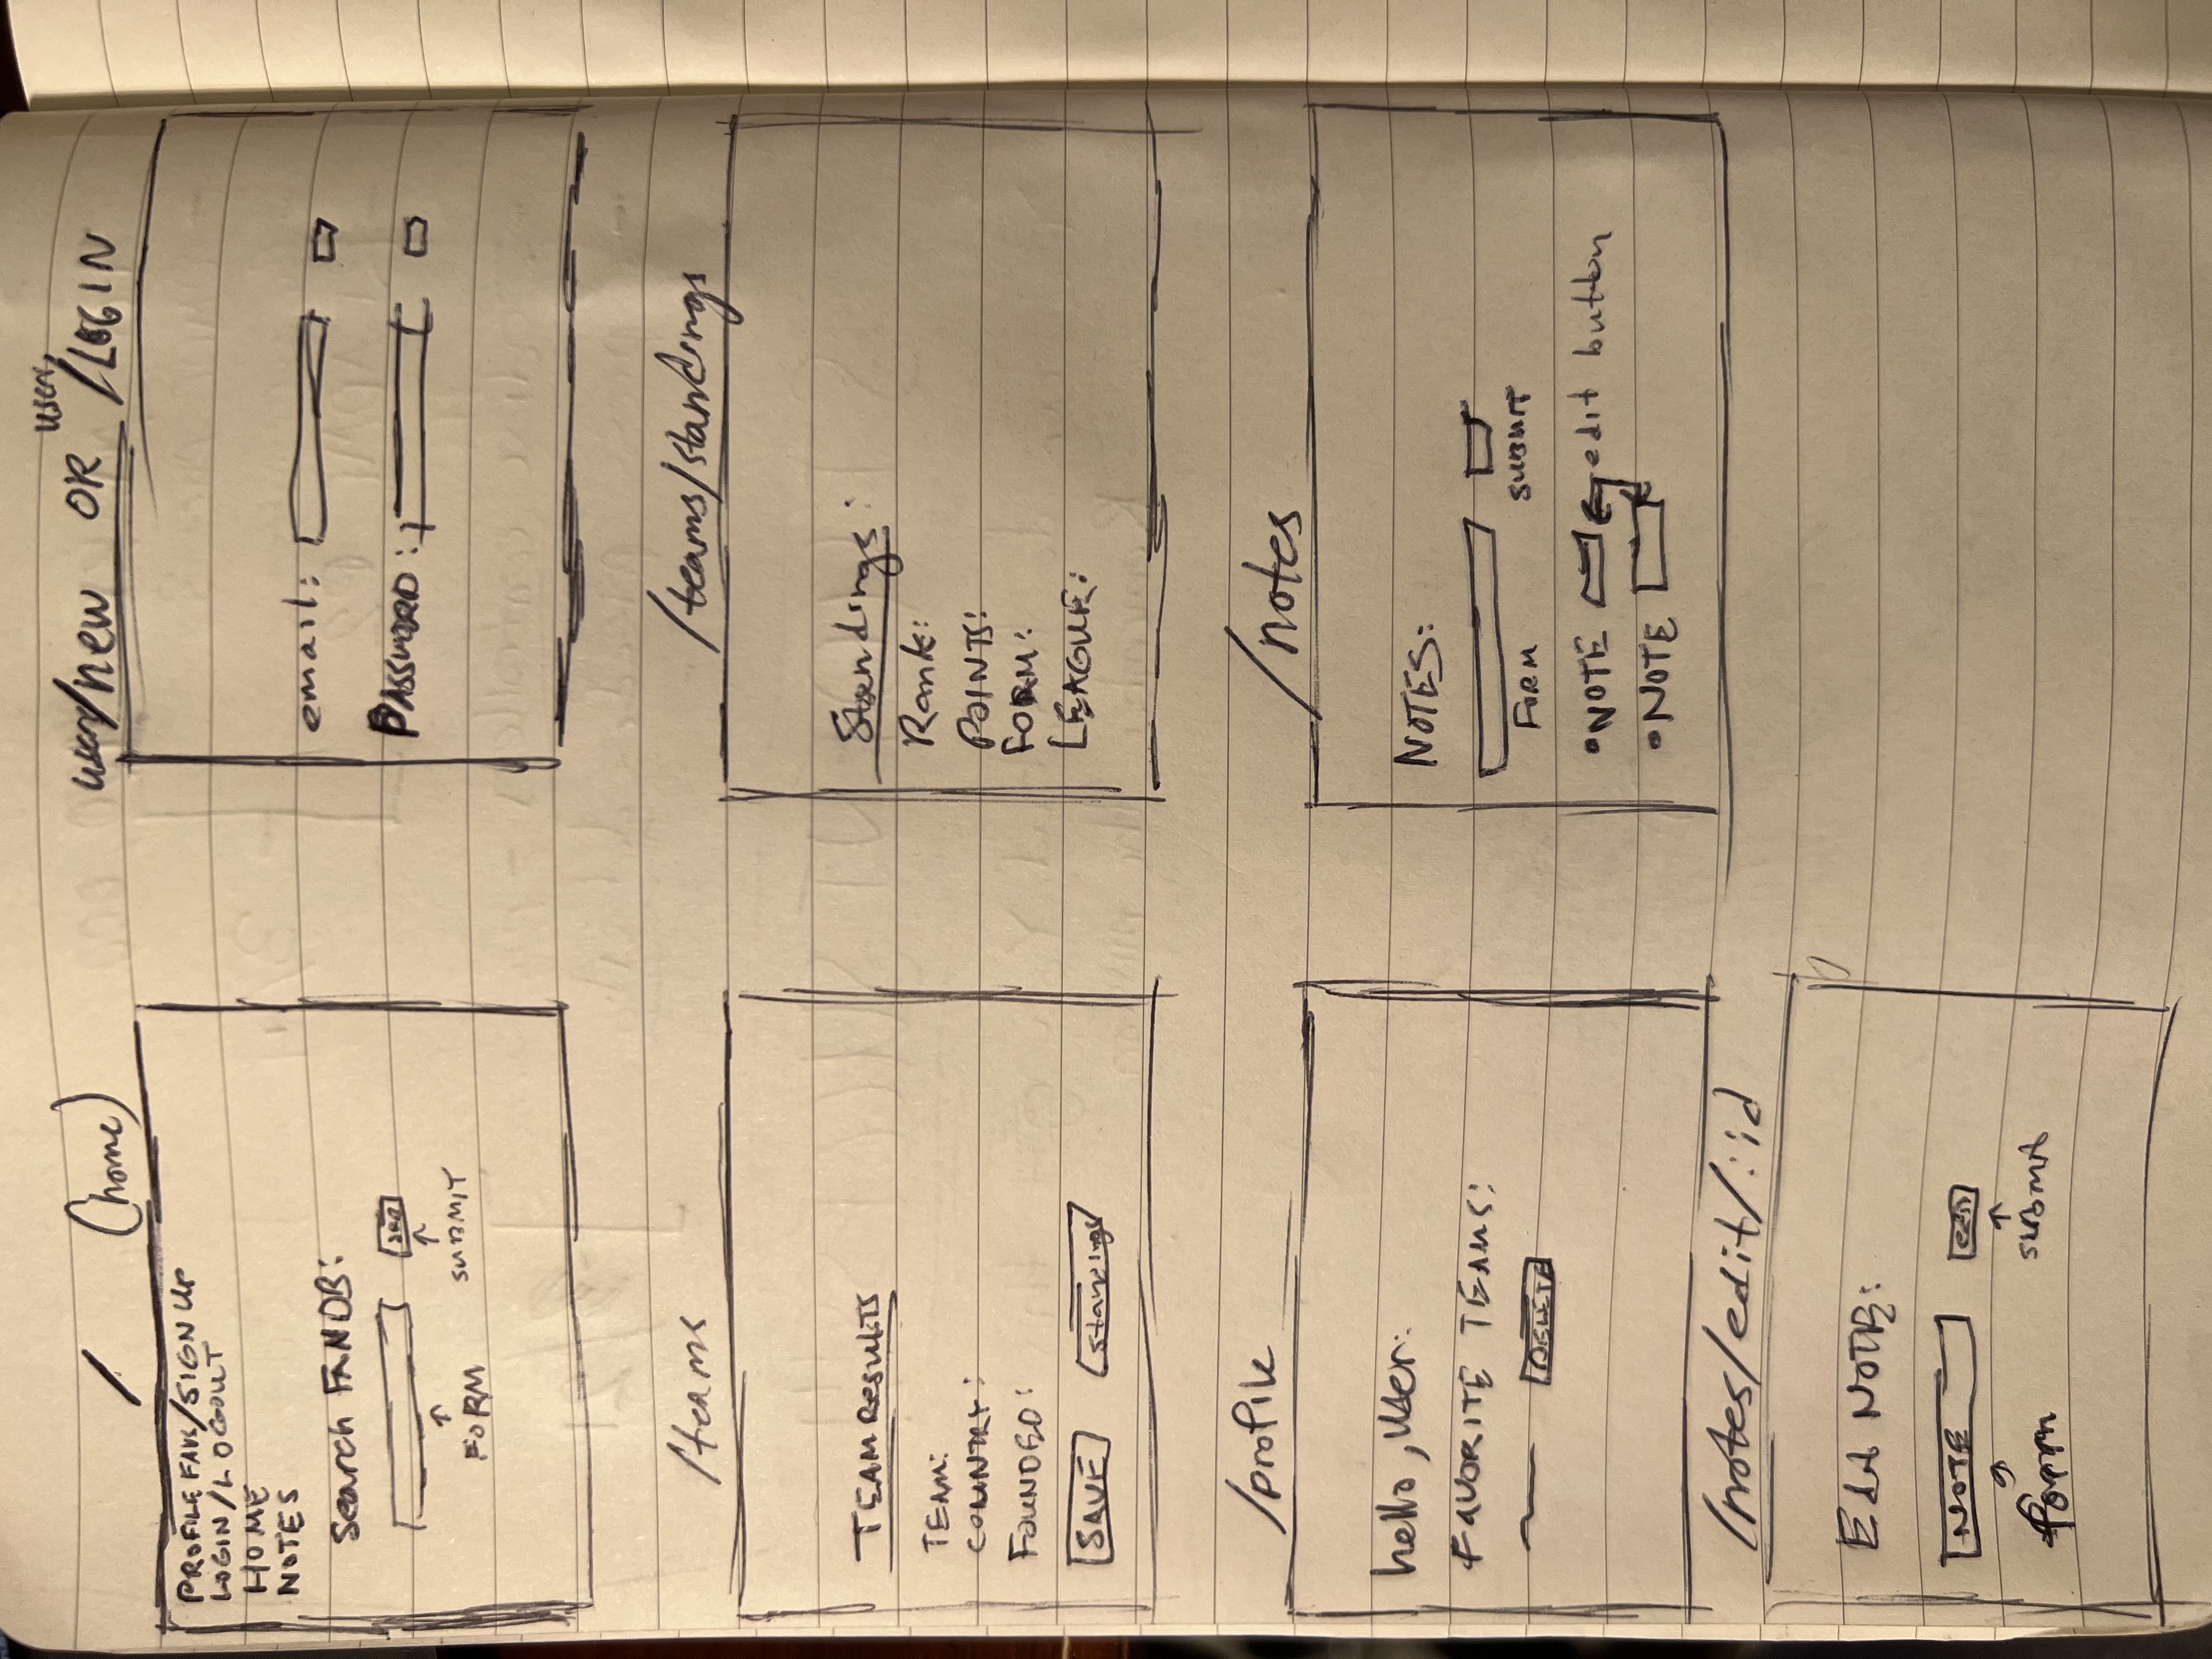 / (home)
PROFILE FAVS/SIGN UP
LOGIN/LOGOUT
HOME
NOTES
Search FANDB:
FORM
SUBMIT
user/new OR user/LOGIN
email:
PASSWORD:
/teams
TEAM RESULTS
TEAM:
COUNTRY:
FOUNDED:
SAVE
Standings
/teams/standings
Standings:
Rank:
POINTS:
FORM:
LEAGUE:
/profile
hello, User:
FAVORITE TEAMS:
DELETE
/notes
NOTES:
FORM
SUBMIT
•NOTE edit button
•NOTE
/notes/edit/:id
Edit NOTE:
NOTE
edit
form
SUBMIT